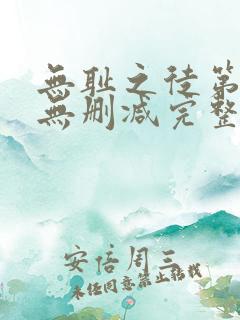 無耻之徒第
無删减完整
安信周三
未经同意禁止转载